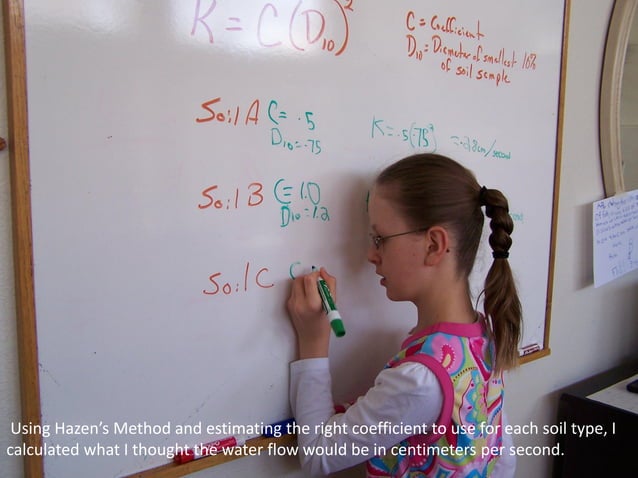 K = C(D₁₀)²
C = Coefficient
D₁₀ = Diameter of smallest 10%
of soil sample
Soil A C = .5
D₁₀ = .75
K = .5(.75)² = .28 cm/second
Soil B C = 1.0
D₁₀ = 1.2
Soil C C
Using Hazen's Method and estimating the right coefficient to use for each soil type, I
calculated what I thought the water flow would be in centimeters per second.